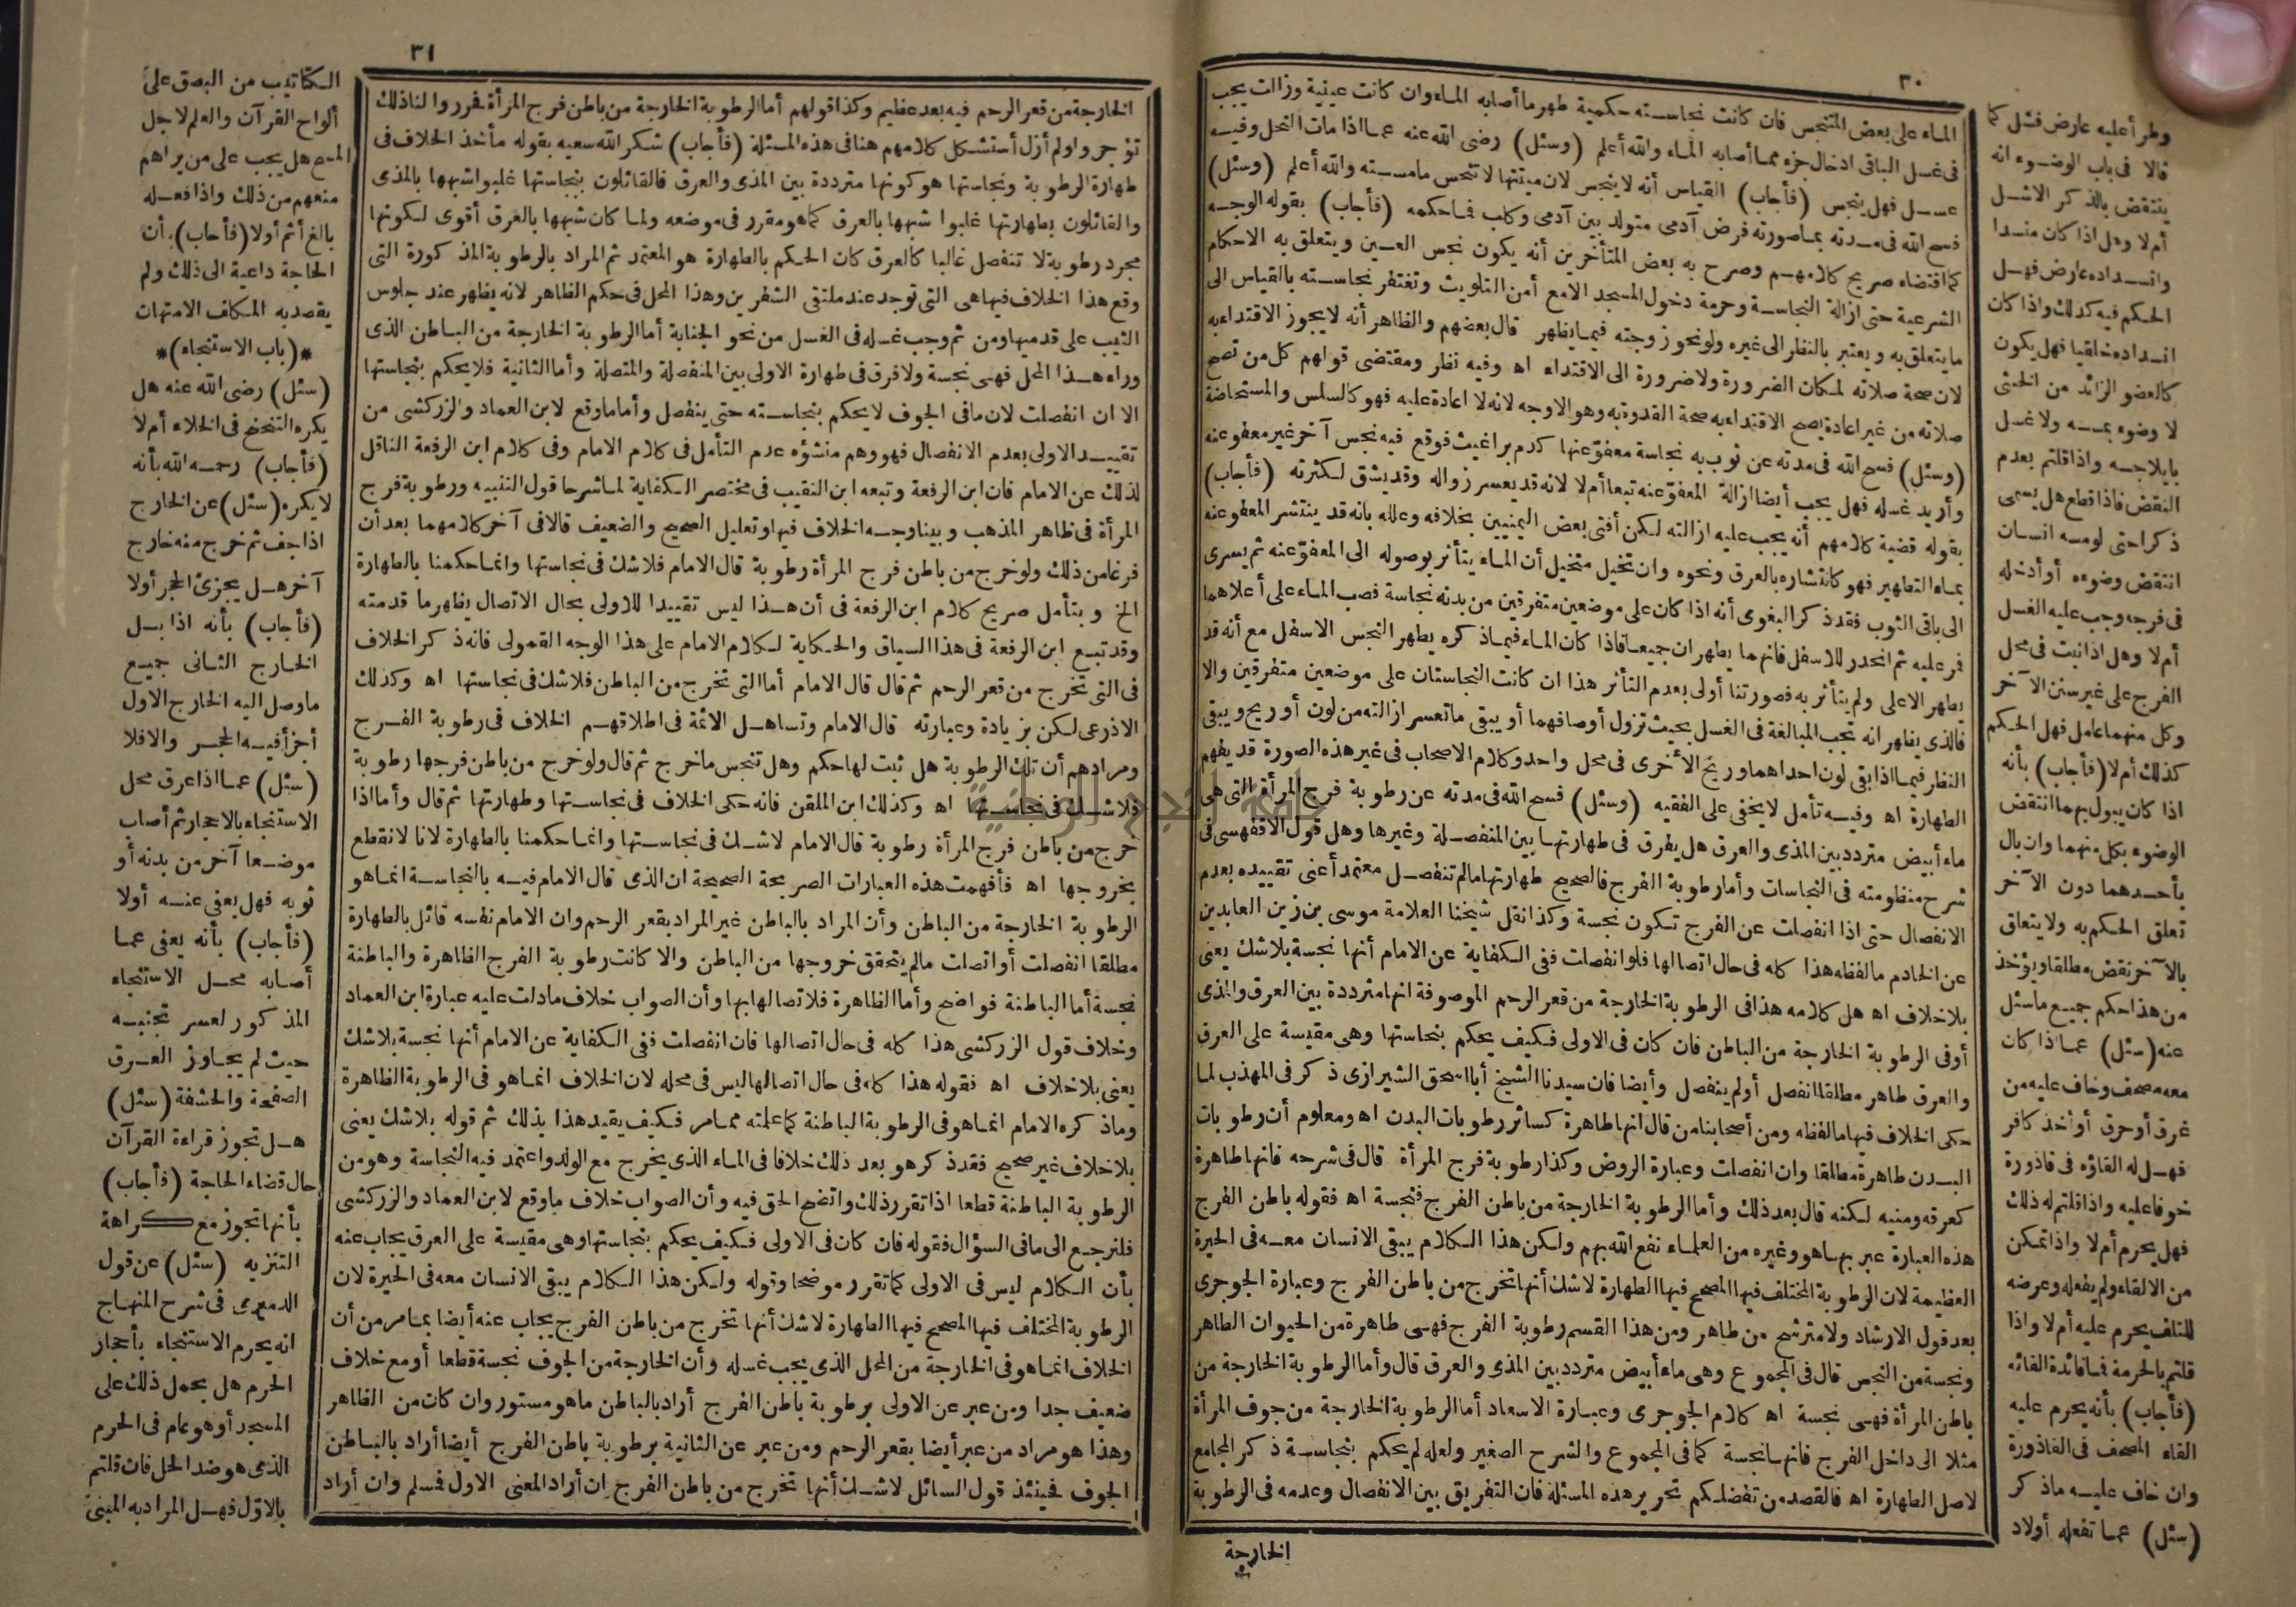 ٣٠
الماء على بعض المتنجس فان كانت نجاسته حكمية طهر ما أصابه الماء وان كانت عينية وزالت يجب
فى غسل الباقى ادخال جزء مما أصابه الماء والله أعلم (وسئل) رضى الله عنه عما اذا مات النحل وفيه
عسل فهل ينجس (فأجاب) القياس أنه لا ينجس لان ميتتها لا تنجس ما مسته والله أعلم (وسئل)
فسح الله فى مدته بما صورته فرض آدمى متولد بين آدمى وكلب فما حكمه (فأجاب) بقوله الوجه
كما اقتضاه صريح كلامهم وصرح به بعض المتأخرين أنه يكون نجس العين ويتعلق به الاحكام
الشرعية حتى ازالة النجاسة وحرمة دخول المسجد الا مع أمن التلويث وتغتفر نجاسته بالقياس الى
ما يتعلق به ويعتبر بالنظر الى غيره ولو نحو زوجته فيما يظهر قال بعضهم والظاهر أنه لا يجوز الاقتداء به
لان صحة صلاته لمكان الضرورة ولا ضرورة الى الاقتداء اه وفيه نظر ومقتضى قولهم كل من تصح
صلاته من غير اعادة يصح الاقتداء به صحة القدوة به وهو الاوجه لانه لا اعادة عليه فهو كالسلس والمستحاضة
(وسئل) فسح الله فى مدته عن ثوب به نجاسة معفوّ عنها كدم براغيث فوقع فيه نجس آخر غير معفو عنه
وأريد غسله فهل يجب أيضا ازالة المعفوّ عنه تبعا أم لا لانه قد يعسر زواله وقد يشق لكثرته (فأجاب)
بقوله قضية كلامهم أنه يجب عليه ازالته لكن أفتى بعض اليمنيين بخلافه وعلله بانه قد ينتشر المعفو عنه
بماء التطهير فهو كانتشاره بالعرق ونحوه وان تخيل متخيل أن الماء يتأثر بوصوله الى المعفوّ عنه ثم يسرى
الى باقى الثوب فقد ذكر البغوى أنه اذا كان على موضعين متفرقين من بدنه نجاسة فصب الماء على أعلاهما
فمر عليه ثم انحدر للاسفل فانهما يطهران جميعا فاذا كان الماء فيما ذكره يطهر النجس الاسفل مع أنه قد
يطهر الاعلى ولم يتأثر به فصورتنا أولى بعدم التأثر هذا ان كانت النجاستان على موضعين متفرقين والا
فالذى يظهر انه تجب المبالغة فى الغسل بحيث تزول أوصافهما أو يبقى ما تعسر ازالته من لون أو ريح ويبقى
النظر فيما اذا بقى لون احداهما وريح الأخرى فى محل واحد وكلام الاصحاب فى غير هذه الصورة قد يفهم
الطهارة اه وفيه تأمل لا يخفى على الفقيه (وسئل) فسح الله فى مدته عن رطوبة فرج المرأة التى هى
ماء أبيض متردد بين المذى والعرق هل يفرق فى طهارتها بين المنفصلة وغيرها وهل قول الاقفهسى فى
شرح منظومته فى النجاسات وأما رطوبة الفرج فالصحيح طهارتها ما لم تنفصل معتمد أعنى تقييده بعدم
الانفصال حتى اذا انفصلت عن الفرج تكون نجسة وكذا نقل شيخنا العلامة موسى بن زين العابدين
عن الخادم ما لفظه هذا كله فى حال اتصالها فلو انفصلت ففى الكفاية عن الامام أنها نجسة بلا شك يعنى
بلا خلاف اه هل كلامه هذا فى الرطوبة الخارجة من قعر الرحم الموصوفة انها مترددة بين العرق والمذى
أو فى الرطوبة الخارجة من الباطن فان كان فى الاولى فكيف يحكم بنجاستها وهى مقيسة على العرق
والعرق طاهر مطلقا انفصل أو لم ينفصل وأيضا فان سيدنا الشيخ أبا اسحق الشيرازى ذكر فى المهذب لما
حكى الخلاف فيها ما لفظه ومن أصحابنا من قال انها طاهرة كسائر رطوبات البدن اه ومعلوم أن رطوبات
البدن طاهرة مطلقا وان انفصلت وعبارة الروض وكذا رطوبة فرج المرأة قال فى شرحه فانها طاهرة
كعرقه ومنيه لكنه قال بعد ذلك وأما الرطوبة الخارجة من باطن الفرج فنجسة اه فقوله باطن الفرج
هذه العبارة عبر بها هو وغيره من العلماء نفع الله بهم ولكن هذا الكلام يبقى الانسان معه فى الحيرة
العظيمة لان الرطوبة المختلف فيها المصحح فيها الطهارة لا شك أنها تخرج من باطن الفرج وعبارة الجوجرى
بعد قول الارشاد ولا مترشح من طاهر ومن هذا القسم رطوبة الفرج فهى طاهرة من الحيوان الطاهر
ونجسة من النجس قال فى المجموع وهى ماء أبيض متردد بين المذى والعرق قال وأما الرطوبة الخارجة من
باطن المرأة فهى نجسة اه كلام الجوجرى وعبارة الاسعاد أما الرطوبة الخارجة من جوف المرأة
مثلا الى داخل الفرج فانها نجسة كما فى المجموع والشرح الصغير ولعله لم يحكم بنجاسة ذكر المجامع
لاصل الطهارة اه فالقصد من تفضلكم تحرير هذه المسئلة فان التفريق بين الانفصال وعدمه فى الرطوبة
الخارجة
وطرأ عليه عارض فشل كما
قالا فى باب الوضوء انه
ينتقض بالذكر الاشل
أم لا وهل اذا كان منسدا
وانسداده عارض فهل
الحكم فيه كذلك واذا كان
انسداده خلقيا فهل يكون
كالعضو الزائد من الخنثى
لا وضوء بمسه ولا غسل
بايلاجه واذا قلتم بعدم
النقض فاذا قطع هل يسمى
ذكرا حتى لو مسه انسان
انتقض وضوءه أو أدخله
فى فرجه وجب عليه الغسل
أم لا وهل اذا نبت فى محل
الفرج على غير سنن الآخر
وكل منهما عامل فهل الحكم
كذلك أم لا (فأجاب) بأنه
اذا كان يبول بهما انتقض
الوضوء بكل منهما وان بال
بأحدهما دون الآخر
تعلق الحكم به ولا يتعلق
بالآخر نقض مطلقا ويؤخذ
من هذا حكم جميع ما سئل
عنه (سئل) عما اذا كان
معه مصحف وخاف عليه من
غرق أو حرق أو أخذ كافر
فهل له القاؤه فى قاذورة
خوفا عليه واذا قلتم له ذلك
فهل يحرم أم لا واذا تمكن
من الالقاء ولم يفعله وعرضه
للتلف يحرم عليه أم لا واذا
قلتم بالحرمة فما فائدة القائه
(فأجاب) بأنه يحرم عليه
القاء المصحف فى القاذورة
وان خاف عليه ما ذكر
(سئل) عما تفعله أولاد
٣١
الخارجة من قعر الرحم فيه بعد عظيم وكذا قولهم أما الرطوبة الخارجة من باطن فرج المرأة فقرروا لنا ذلك
تؤجروا ولم أزل أستشكل كلامهم هنا فى هذه المسئلة (فأجاب) شكر الله سعيه بقوله مأخذ الخلاف فى
طهارة الرطوبة ونجاستها هو كونها مترددة بين المذى والعرق فالقائلون بنجاستها غلبوا شبهها بالمذى
والقائلون بطهارتها غلبوا شبهها بالعرق كما هو مقرر فى موضعه ولما كان شبهها بالعرق أقوى لكونها
مجرد رطوبة لا تنفصل غالبا كالعرق كان الحكم بالطهارة هو المعتمد ثم المراد بالرطوبة المذكورة التى
وقع هذا الخلاف فيها هى التى توجد عند ملتقى الشفرين وهذا المحل فى حكم الظاهر لانه يظهر عند جلوس
الثيب على قدميها ومن ثم وجب غسله فى الغسل من نحو الجنابة أما الرطوبة الخارجة من الباطن الذى
وراء هذا المحل فهى نجسة ولا فرق فى طهارة الاولى بين المنفصلة والمتصلة وأما الثانية فلا يحكم بنجاستها
الا ان انفصلت لان ما فى الجوف لا يحكم بنجاسته حتى ينفصل وأما ما وقع لابن العماد والزركشى من
تقييد الاولى بعدم الانفصال فهو وهم منشؤه عدم التأمل فى كلام الامام وفى كلام ابن الرفعة الناقل
لذلك عن الامام فان ابن الرفعة وتبعه ابن النقيب فى مختصر الكفاية لما شرحا قول التنبيه ورطوبة فرج
المرأة فى ظاهر المذهب وبينا وجه الخلاف فيها وتعليل الصحيح والضعيف قالا فى آخر كلامهما بعد أن
فرغا من ذلك ولو خرج من باطن فرج المرأة رطوبة قال الامام فلا شك فى نجاستها وانما حكمنا بالطهارة
الخ وبتأمل صريح كلام ابن الرفعة فى أن هذا ليس تقييدا للاولى بحال الاتصال يظهر ما قدمته
وقد تبع ابن الرفعة فى هذا السياق والحكاية لكلام الامام على هذا الوجه القمولى فانه ذكر الخلاف
فى التى تخرج من قعر الرحم ثم قال قال الامام أما التى تخرج من الباطن فلا شك فى نجاستها اه وكذلك
الاذرعى لكن بزيادة وعبارته قال الامام وتساهل الائمة فى اطلاقهم الخلاف فى رطوبة الفرج
ومرادهم أن تلك الرطوبة هل ثبت لها حكم وهل تنجس ما خرج ثم قال ولو خرج من باطن فرجها رطوبة
فلا شك فى نجاستها اه وكذلك ابن الملقن فانه حكى الخلاف فى نجاستها وطهارتها ثم قال وأما اذا
خرج من باطن فرج المرأة رطوبة قال الامام لا شك فى نجاستها وانما حكمنا بالطهارة لانا لا نقطع
بخروجها اه فأفهمت هذه العبارات الصريحة الصحيحة ان الذى قال الامام فيه بالنجاسة انما هو
الرطوبة الخارجة من الباطن وأن المراد بالباطن غير المراد بقعر الرحم وان الامام نفسه قائل بالطهارة
مطلقا انفصلت أو اتصلت ما لم يتحقق خروجها من الباطن والا كانت رطوبة الفرج الظاهرة والباطنة
نجسة أما الباطنة فواضح وأما الظاهرة فلاتصالها بها وأن الصواب خلاف ما دلت عليه عبارة ابن العماد
وخلاف قول الزركشى هذا كله فى حال اتصالها فان انفصلت ففى الكفاية عن الامام أنها نجسة بلا شك
يعنى بلا خلاف اه فقوله هذا كله فى حال اتصالها ليس فى محله لان الخلاف انما هو فى الرطوبة الظاهرة
وما ذكره الامام انما هو فى الرطوبة الباطنة كما علمته مما مر فكيف يقيد هذا بذلك ثم قوله بلا شك يعنى
بلا خلاف غير صحيح فقد ذكر هو بعد ذلك خلافا فى الماء الذى يخرج مع الولد واعتمد فيه النجاسة وهو من
الرطوبة الباطنة قطعا اذا تقرر ذلك واتضح الحق فيه وأن الصواب خلاف ما وقع لابن العماد والزركشى
فلنرجع الى ما فى السؤال فقوله فان كان فى الاولى فكيف يحكم بنجاستها وهى مقيسة على العرق يجاب عنه
بأن الكلام ليس فى الاولى كما تقرر موضحا وقوله ولكن هذا الكلام يبقى الانسان معه فى الحيرة لان
الرطوبة المختلف فيها المصحح فيها الطهارة لا شك أنها تخرج من باطن الفرج يجاب عنه أيضا بما مر من أن
الخلاف انما هو فى الخارجة من المحل الذى يجب غسله وأن الخارجة من الجوف نجسة قطعا أو مع خلاف
ضعيف جدا ومن عبر عن الاولى برطوبة باطن الفرج أراد بالباطن ما هو مستور وان كان من الظاهر
وهذا هو مراد من عبر أيضا بقعر الرحم ومن عبر عن الثانية برطوبة باطن الفرج أيضا أراد بالباطن
الجوف فحينئذ قول السائل لا شك أنها تخرج من باطن الفرج ان أراد المعنى الاول فمسلم وان أراد
الكتاتيب من البصق على
ألواح القرآن والعلم لاجل
المسح هل يجب على من يراهم
منعهم من ذلك واذا فعله
بالغ أثم أولا (فأجاب) بأن
الحاجة داعية الى ذلك ولم
يقصد به المكلف الامتهان
*(باب الاستنجاء)*
(سئل) رضى الله عنه هل
يكره التنحنح فى الخلاء أم لا
(فأجاب) رحمه الله بأنه
لا يكره (سئل) عن الخارج
اذا جف ثم خرج منه خارج
آخر هل يجزئ الحجر أولا
(فأجاب) بأنه اذا بل
الخارج الثانى جميع
ما وصل اليه الخارج الاول
أجزأ فيه الحجر والا فلا
(سئل) عما اذا عرق محل
الاستنجاء بالاحجار ثم أصاب
موضعا آخر من بدنه أو
ثوبه فهل يعفى عنه أولا
(فأجاب) بأنه يعفى عما
أصابه محل الاستنجاء
المذكور لعسر تجنبه
حيث لم يجاوز العرق
الصفحة والحشفة (سئل)
هل تجوز قراءة القرآن
حال قضاء الحاجة (فأجاب)
بأنها تجوز مع كراهة
التنزيه (سئل) عن قول
الدميرى فى شرح المنهاج
انه يحرم الاستنجاء بأحجار
الحرم هل يحمل ذلك على
المسجد أو هو عام فى الحرم
الذى هو ضد الحل فان قلتم
بالاوّل فهل المراد به المبنى